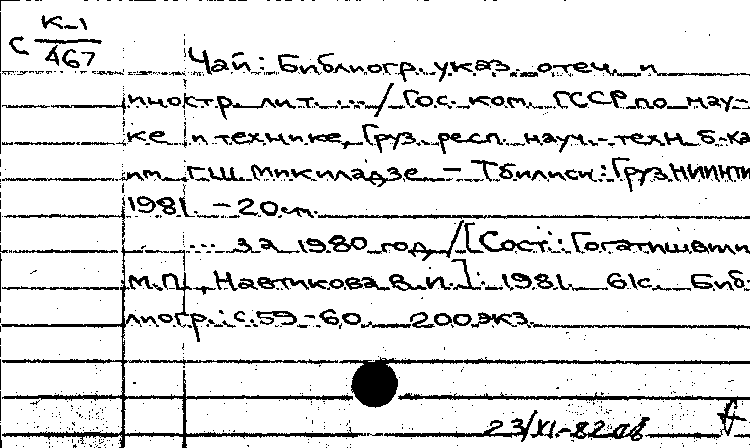 К-1
С 467
Чай: Библиогр. указ. отеч. и
иностр. лит. ... / Гос. ком. ГССР по нау-
ке и технике, Груз. респ. науч.-техн. б-ка
им. Г.Ш. Микиладзе. – Тбилиси: ГрузНИИНТИ
1981. – 20 см.
... за 1980 год / [Сост.: Гогатишвили
М.П., Навтикова В.И.]. 1981. 61с. Биб-
лиогр.: с.59-60. 200 экз.
23/XI-82